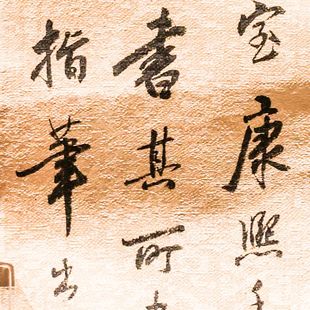 室康熙
書其可
指筆出